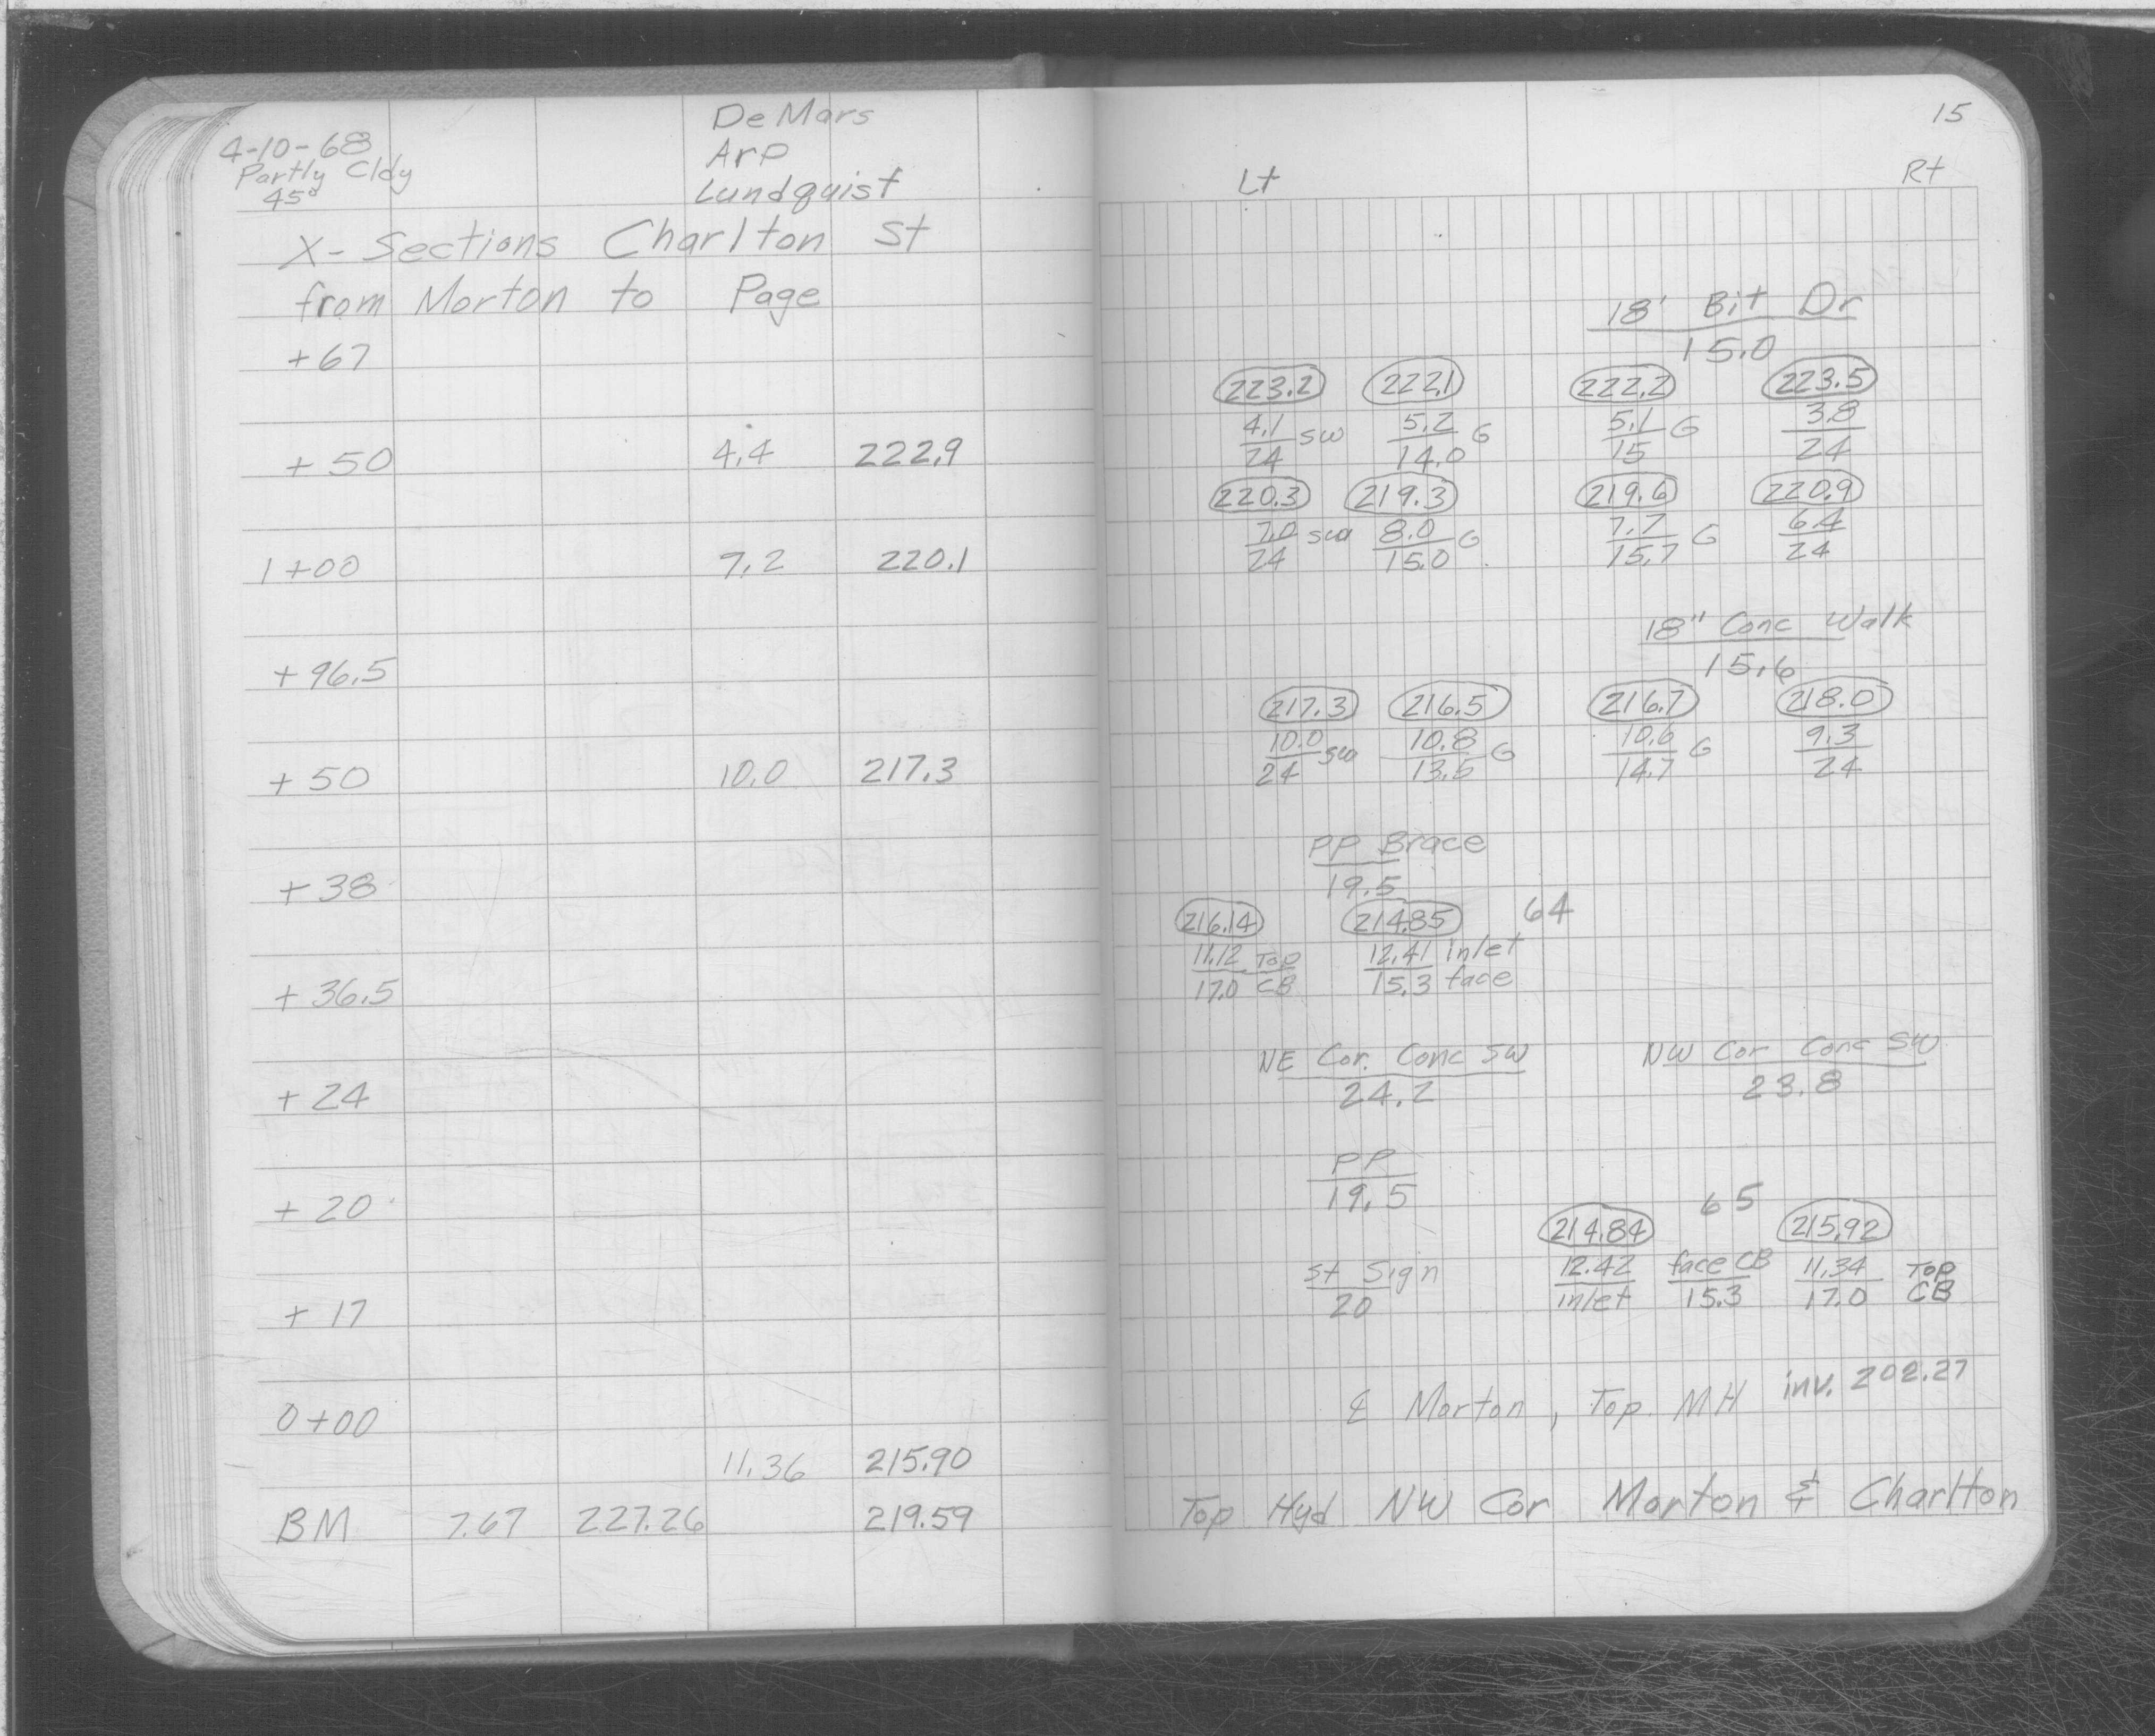 4-10-68
Partly Cldy
45°
De Mars
Arp
Lundquist
X-Sections Charlton St
from Morton to Page
+67
+50 4.4 222.9
1+00 7.2 220.1
+96.5
+50 10.0 217.3
+38
+36.5
+24
+20
+17
0+00
11.36 215.90
BM 7.67 227.26 219.59
15
Lt Rt
18' Bit Dr
15.0
223.2 222.1 222.2 223.5
4.1 SW 5.2 G 5.1 G 3.8
24 14.0 15 24
220.3 219.3 219.6 220.9
7.0 SW 8.0 G 7.7 G 6.4
24 15.0 15.7 24
18" Conc Walk
15.6
217.3 216.5 216.7 218.0
10.0 SW 10.8 G 10.6 G 9.3
24 13.5 14.7 24
PP Brace
19.5
216.14 214.85 64
11.12 Top 12.41 inlet
17.0 CB 15.3 face
NE Cor. Conc SW NW Cor Conc SW
24.2 23.8
PP
19.5
65
214.84 215.92
St Sign 12.42 face CB 11.34 Top
20 inlet 15.3 17.0 CB
℄ Morton, Top MH inv. 202.27
Top Hyd NW Cor Morton & Charlton